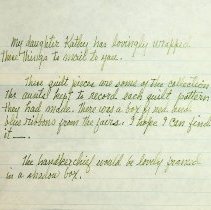 My daughter Kathy has lovingly wrapped
these things to mail to you.
These quilt pieces are some of the collection
the aunts kept to record each quilt pattern
they had made. There was a box of red and
blue ribbons from the fairs. I hope I can find
it —.
The handkerchief would be lovely framed
in a shadow box.